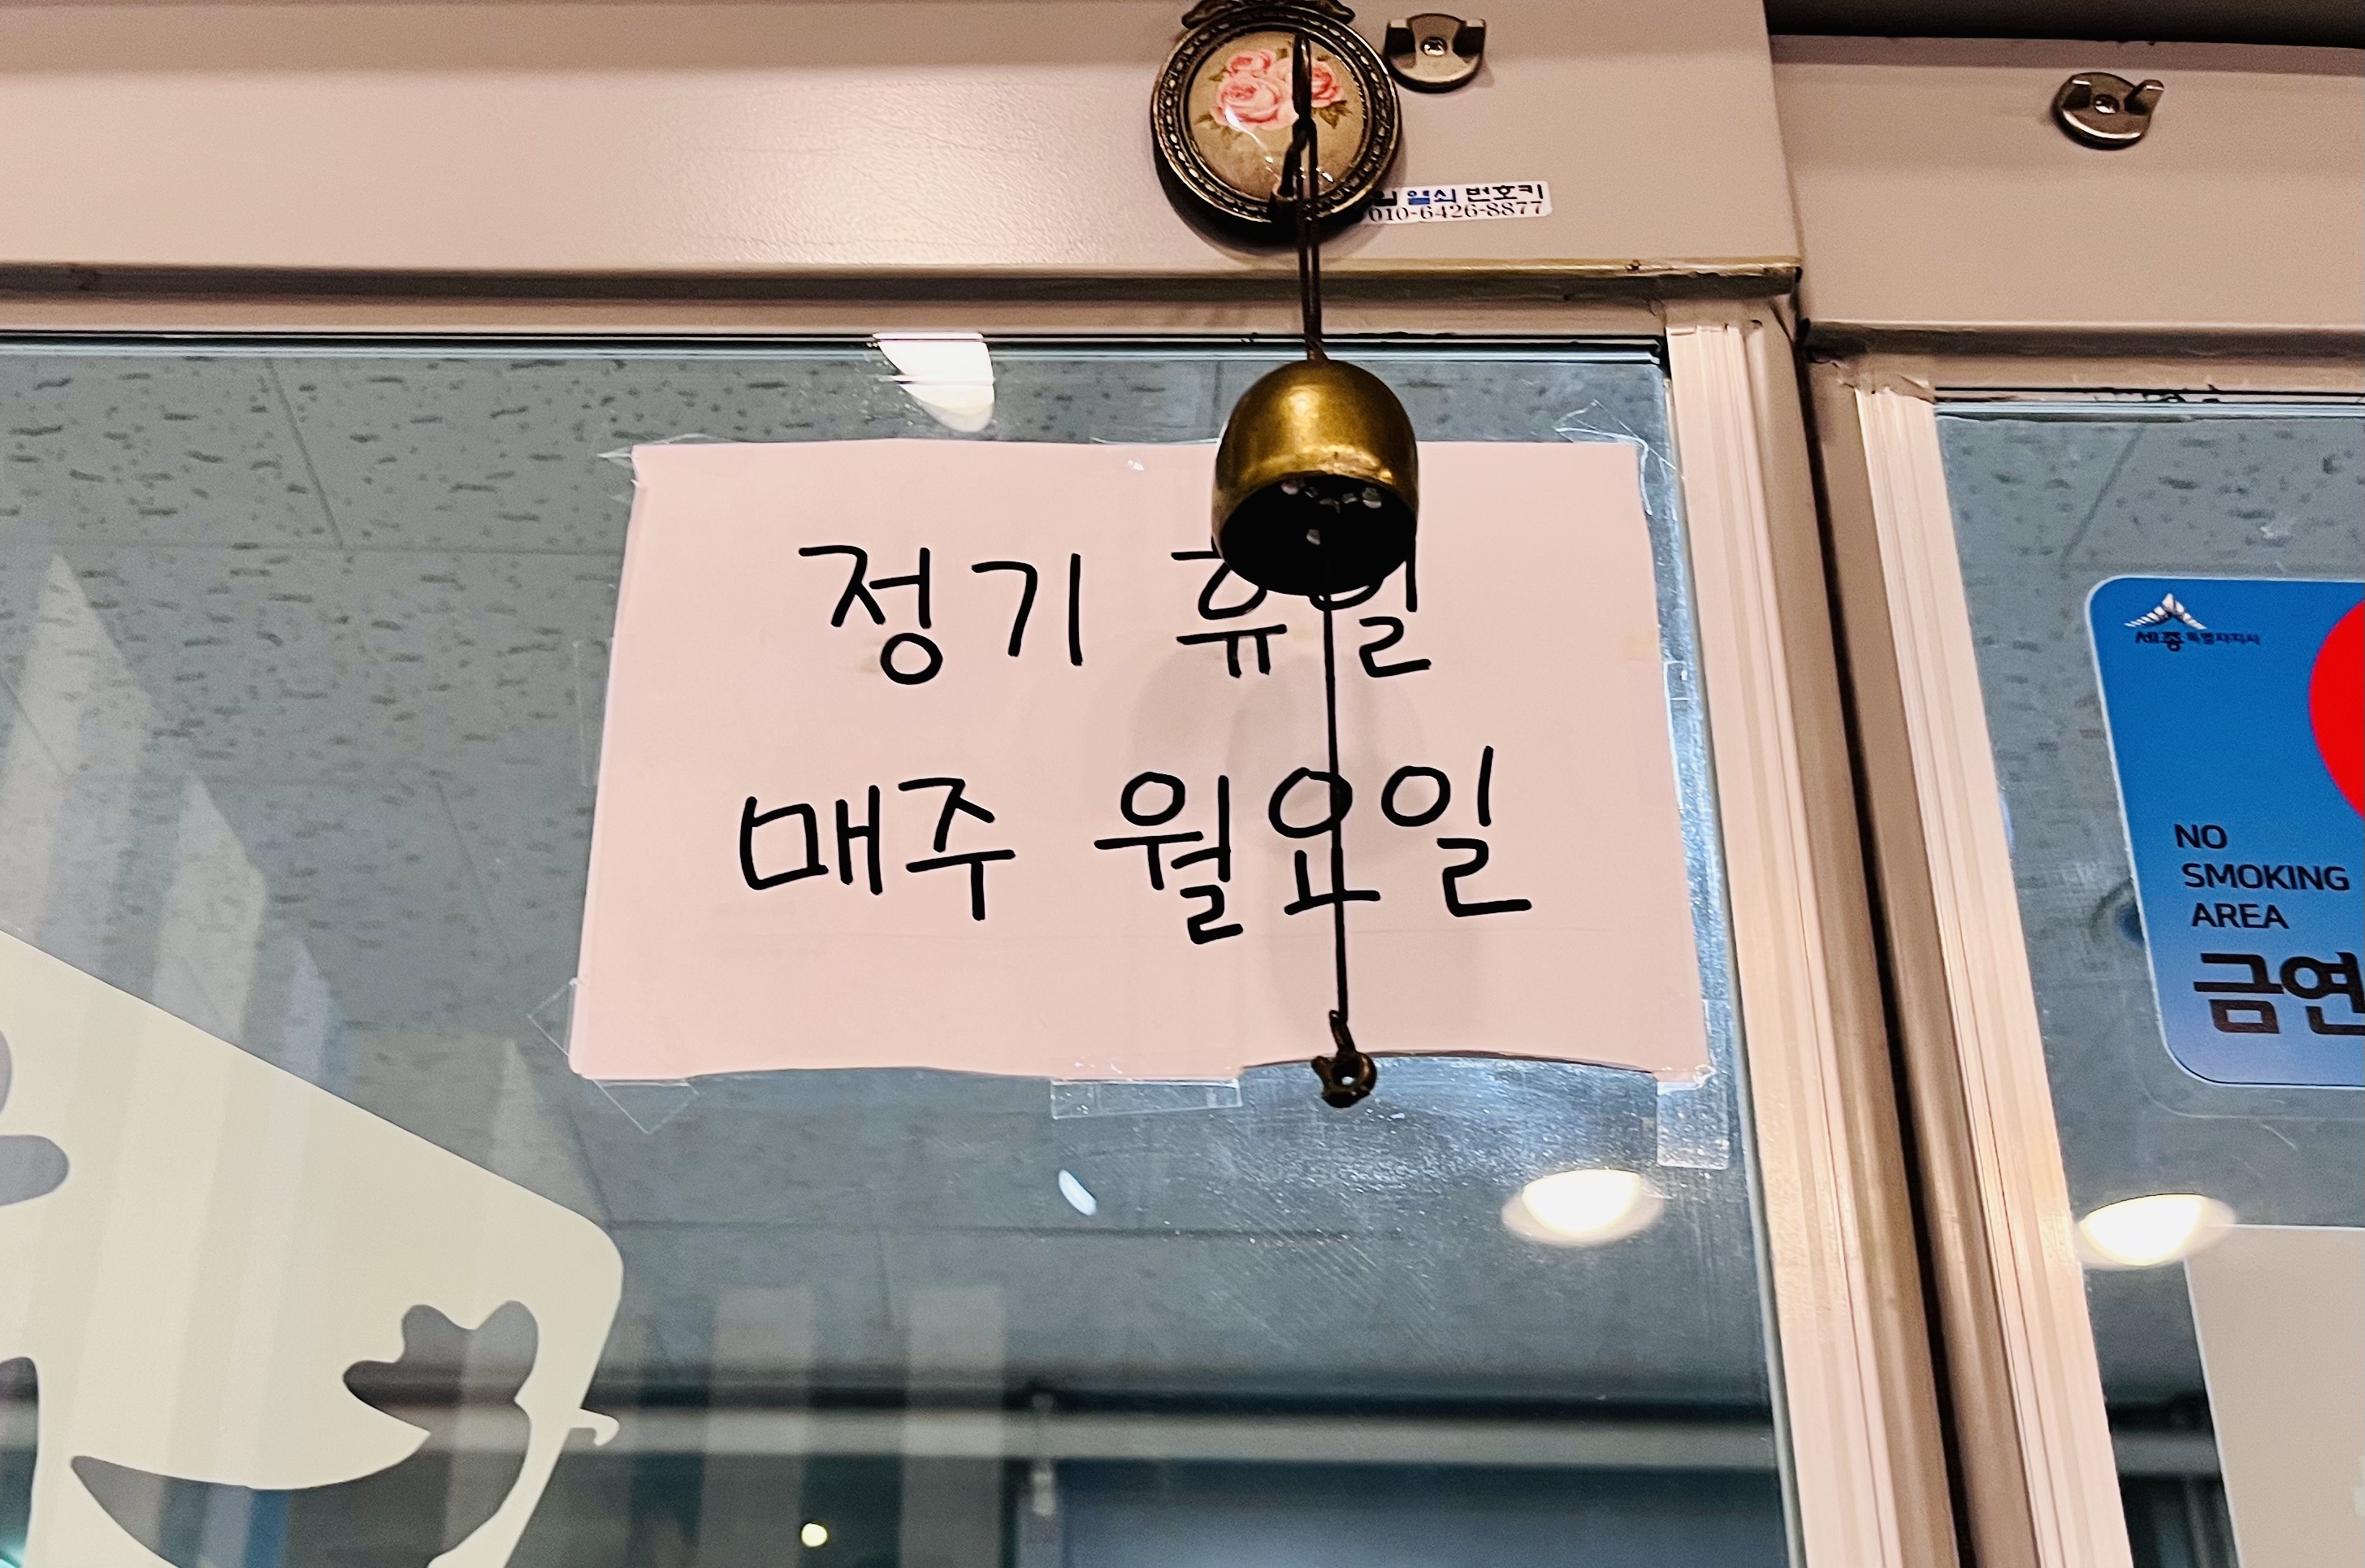 열쇠 번호키
010-6426-8877
정기 휴일
매주 월요일
세종특별자치시
NO
SMOKING
AREA
금연